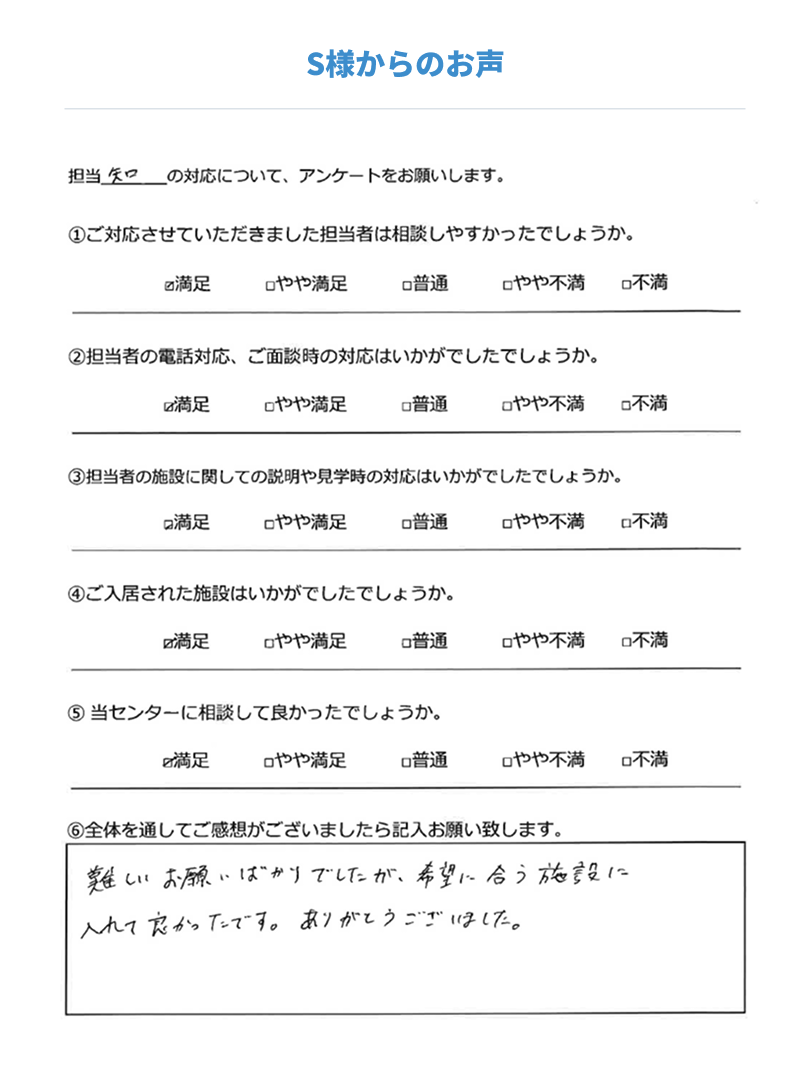 S様からのお声
担当 矢口 の対応について、アンケートをお願いします。
①ご対応させていただきました担当者は相談しやすかったでしょうか。
☑満足 □やや満足 □普通 □やや不満 □不満
②担当者の電話対応、ご面談時の対応はいかがでしたでしょうか。
☑満足 □やや満足 □普通 □やや不満 □不満
③担当者の施設に関しての説明や見学時の対応はいかがでしたでしょうか。
☑満足 □やや満足 □普通 □やや不満 □不満
④ご入居された施設はいかがでしたでしょうか。
☑満足 □やや満足 □普通 □やや不満 □不満
⑤ 当センターに相談して良かったでしょうか。
☑満足 □やや満足 □普通 □やや不満 □不満
⑥全体を通してご感想がございましたら記入お願い致します。
難しいお願いばかりでしたが、希望に合う施設に
入れて良かったです。ありがとうございました。